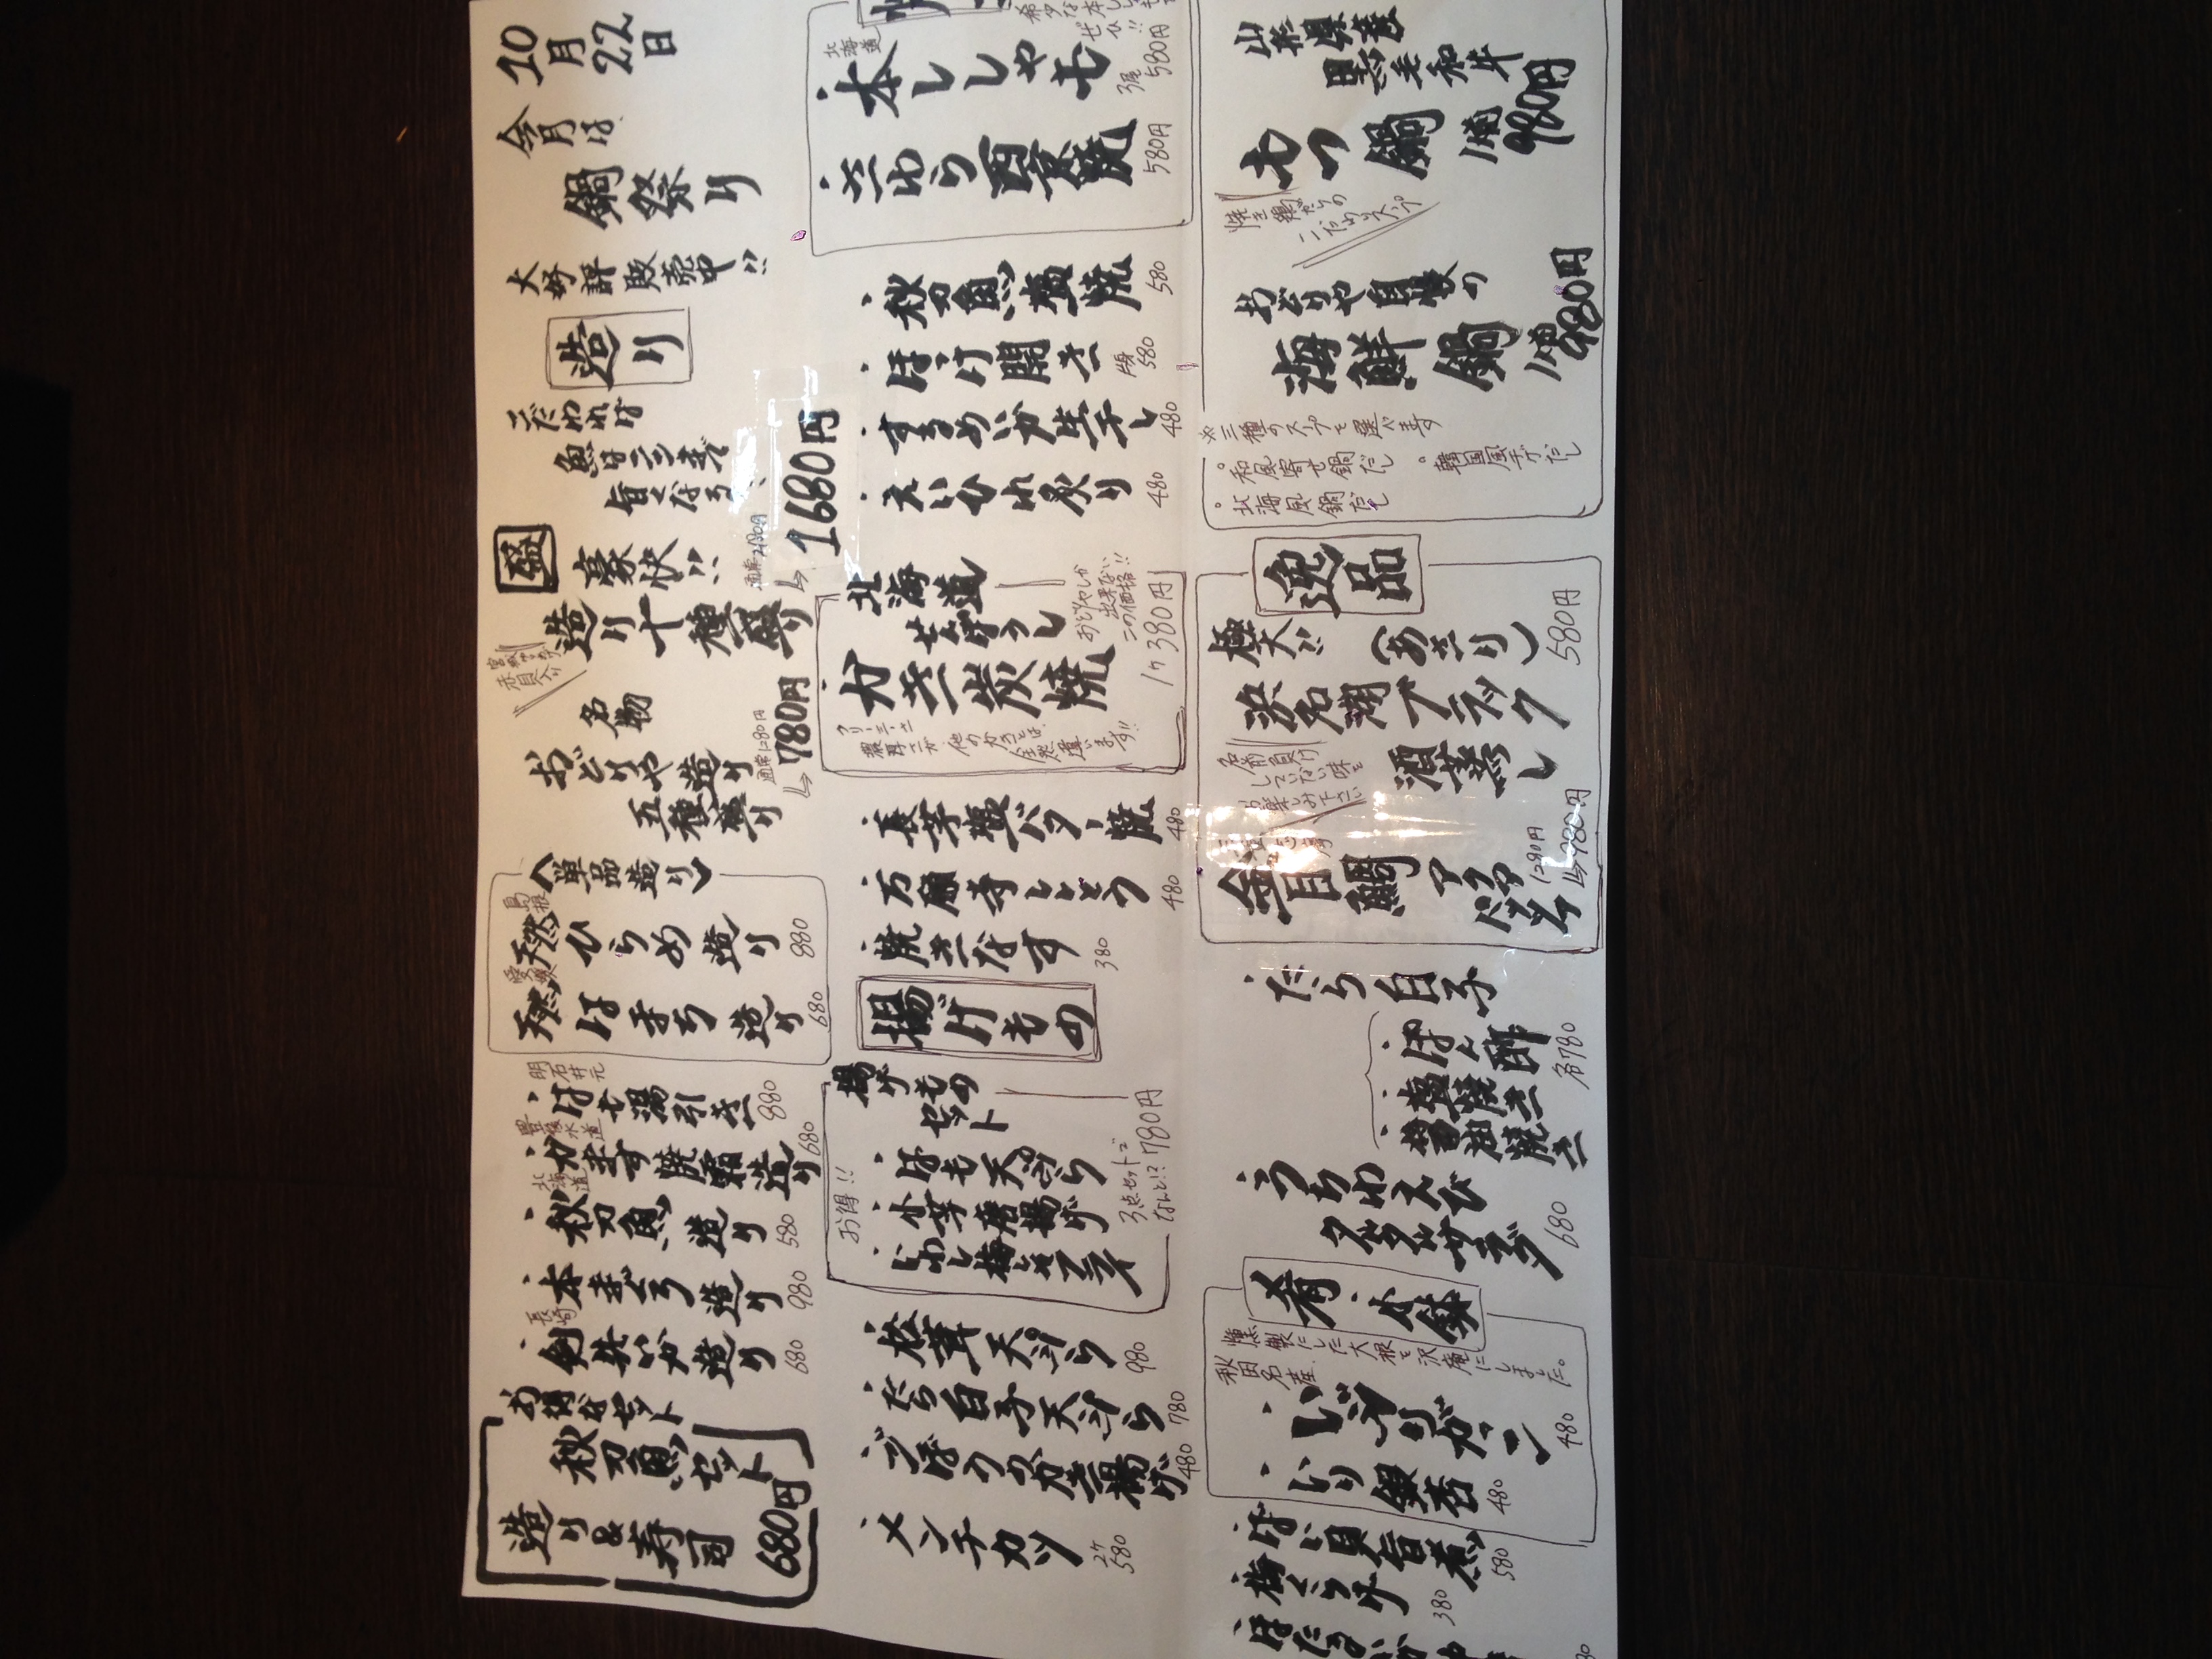 10月22日
今月は
鍋祭り
大好評販売中!!
造り
こだわれば
魚はこうまで
旨くなる
盛
豪快!!
造り十種盛り
通常2180円
1680円
名物
おどりや造り
五種盛り
通常1280円
780円
〈単品造り〉
島根
天然ひらめ造り 880
愛媛
天然はまち造り 680
明石井元
・はも湯引き 880
豊後水道
・かます焼霜造り 680
北海道
・秋刀魚造り 580
・本まぐろ造り 980
長崎
・剣先いか造り 680
お得なセット
秋刀魚セット
造り&寿司
680円
北海道
・本ししゃも
3尾 580円
・さわら西京焼 580円
・秋刀魚塩焼 580
・ほっけ開き 半身 580
・するめいか生干し 480
・えいひれ炙り 480
北海道
昆布っ子
・カキ炭焼
おどりやしか
出来ない
この価格!!
1ケ380円
クリーミーさ
濃厚さが
他のカキとは
全然違います!!
・長芋塩バター焼 480
・万願寺ししとう 480
・焼きなす 380
揚げもの
揚げもの
セット
お得!!
・はも天ぷら
・小芋唐揚げ
・いわし梅しそフライ
3点セットで
なんと!? 780円
・松茸天ぷら 980
・たら白子天ぷら 780
・ごぼうのかき揚げ 480
・メンチカツ 2ケ 580
山形県産
黒毛和牛
もつ鍋
1人前
980円
焼き鶏がらの
こだわりスープ
おどりや自慢の
海鮮鍋
1人前
980円
※三種のスープを選べます
。和風寄せ鍋だし
。韓国風チゲだし
。北海風鍋だし
逸品
極大!!
(あさり)
浜名湖ブラック
酒蒸し
580円
名前負け
していない味を
お楽しみ下さい
金目鯛
アクア
パッツァ
1280円
980円
・たら白子
・ぽん酢
・塩焼き
・醤油焼き
各780
・うちわえび
タルタルサラダ 680
肴・小鉢
燻製にした大根を沢庵にしました。
秋田名産
・いぶりガーコ 480
・いり銀杏 480
・ばい貝旨煮 580
・梅くらげ 380